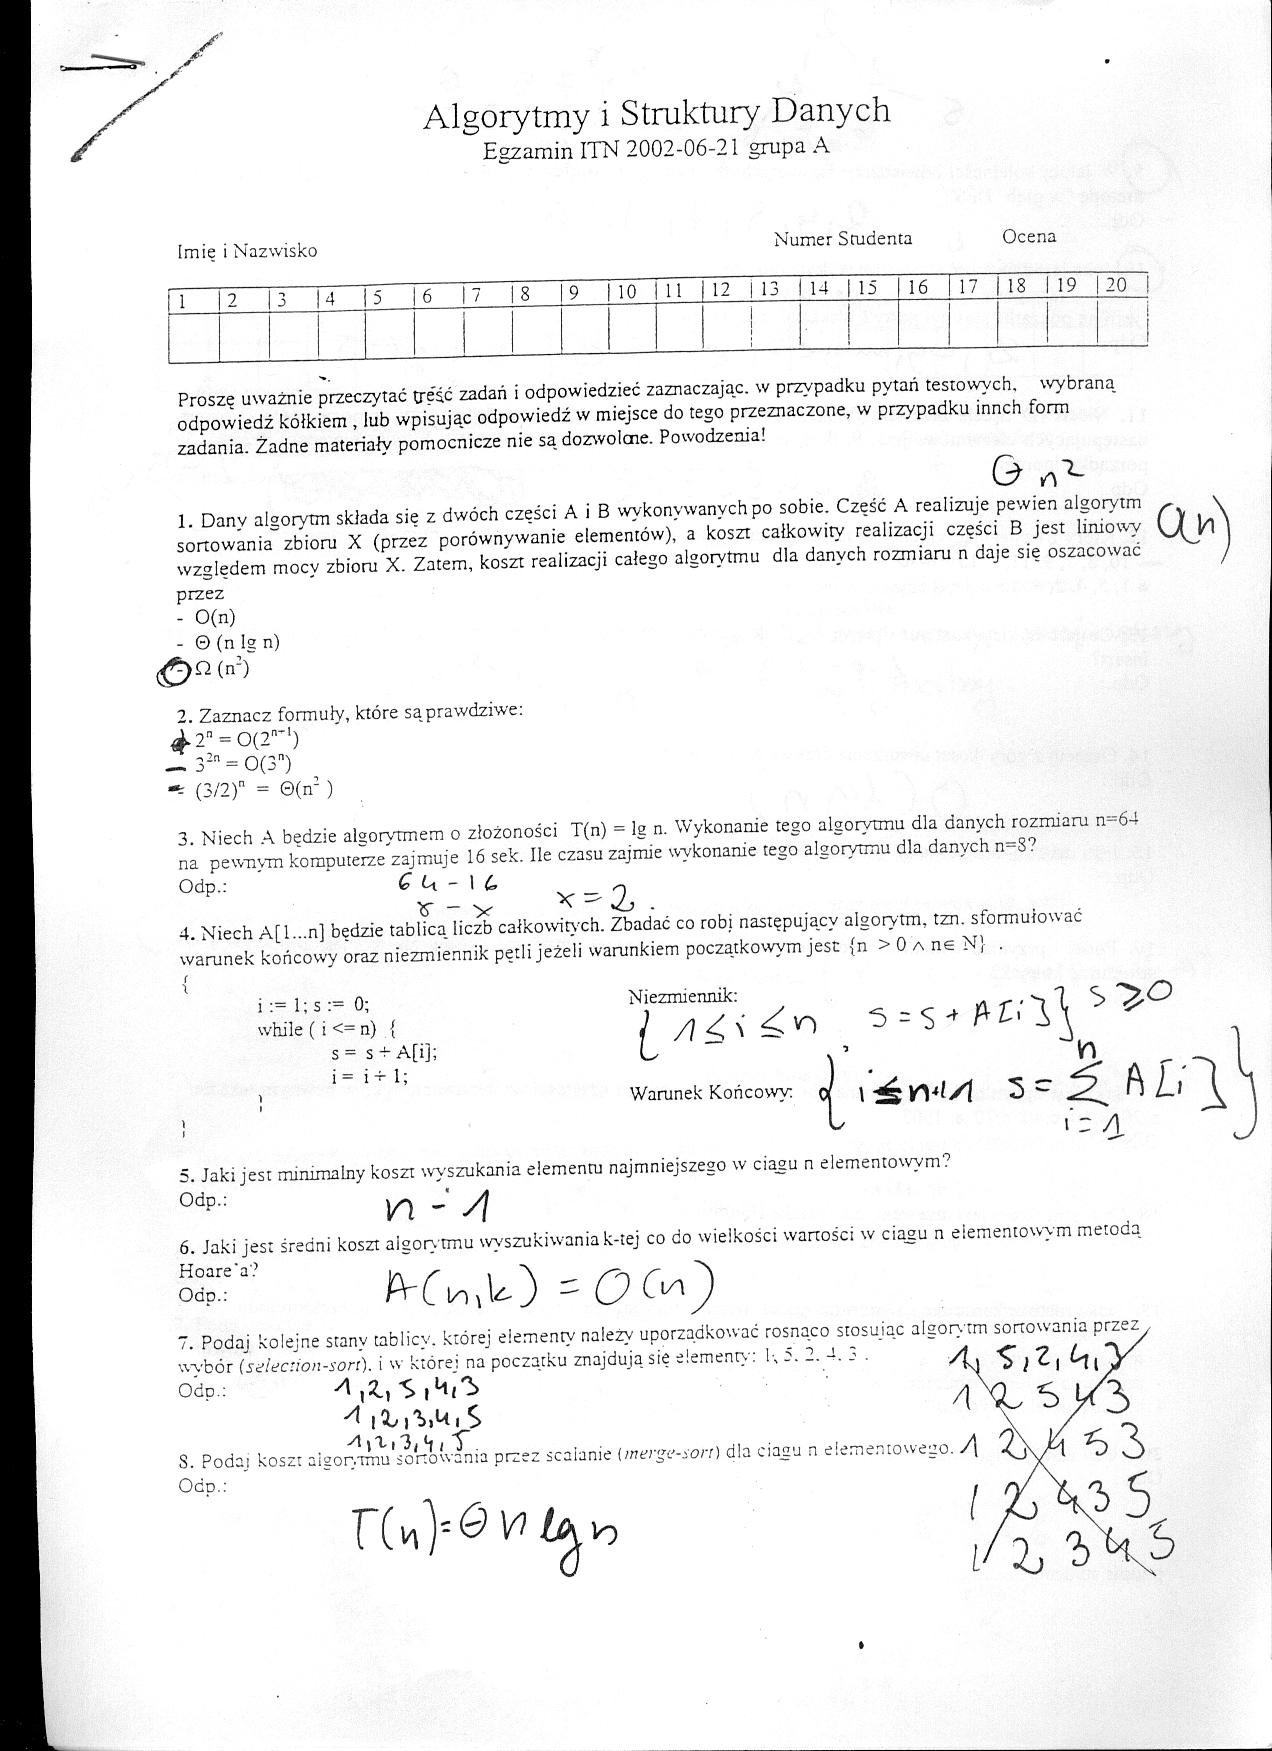 Algorytmy i Struktury Danych
Egzamin ITN 2002-06-21 grupa A
Imię i Nazwisko Numer Studenta Ocena
1 2 3 4 5 6 7 8 9 10 11 12 13 14 15 16 17 18 19 20
Proszę uważnie przeczytać treść zadań i odpowiedzieć zaznaczając, w przypadku pytań testowych, wybraną
odpowiedź kółkiem , lub wpisując odpowiedź w miejsce do tego przeznaczone, w przypadku innch form
zadania. Żadne materiały pomocnicze nie są dozwolone. Powodzenia!
Θ n²
1. Dany algorytm składa się z dwóch części A i B wykonywanych po sobie. Część A realizuje pewien algorytm
sortowania zbioru X (przez porównywanie elementów), a koszt całkowity realizacji części B jest liniowy
O(n)
względem mocy zbioru X. Zatem, koszt realizacji całego algorytmu dla danych rozmiaru n daje się oszacować
przez
- O(n)
- Θ (n lg n)
- Ω (n²)
2. Zaznacz formuły, które są prawdziwe:
2ⁿ = O(2ⁿ⁻¹)
- 3²ⁿ = O(3ⁿ)
- (3/2)ⁿ = Θ(n² )
3. Niech A będzie algorytmem o złożoności T(n) = lg n. Wykonanie tego algorytmu dla danych rozmiaru n=64
na pewnym komputerze zajmuje 16 sek. Ile czasu zajmie wykonanie tego algorytmu dla danych n=8?
Odp.: 64 - 16
8 - x x = 2 .
4. Niech A[1...n] będzie tablicą liczb całkowitych. Zbadać co robi następujący algorytm, tzn. sformułować
warunek końcowy oraz niezmiennik pętli jeżeli warunkiem początkowym jest {n > 0 ∧ n∈ N} .
{
i := 1; s := 0; Niezmiennik:
while ( i <= n) { { 1≤i≤n , s = s + A[i]} s ≥0
s = s + A[i];
i = i + 1; Warunek Końcowy: { i≤n+1 s = Σ A[i] }
n
i = 1
}
}
5. Jaki jest minimalny koszt wyszukania elementu najmniejszego w ciągu n elementowym?
Odp.: n - 1
6. Jaki jest średni koszt algorytmu wyszukiwania k-tej co do wielkości wartości w ciągu n elementowym metodą
Hoare'a?
Odp.: A(n,k) = O(n)
7. Podaj kolejne stany tablicy, której elementy należy uporządkować rosnąco stosując algorytm sortowania przez
wybór (selection-sort), i w której na początku znajdują się elementy: 1, 5, 2, 4, 3 . 1, 5, 2, 4, 3
Odp.: 1,2,5,4,3 1 2 5 4 3
1,2,3,4,5
1,2,3,4,5
8. Podaj koszt algorytmu sortowania przez scalanie (merge-sort) dla ciągu n elementowego. 1 2 4 5 3
Odp.: 1 2 4 3 5
T(n)=Θ n lg n
1 2 3 4 5